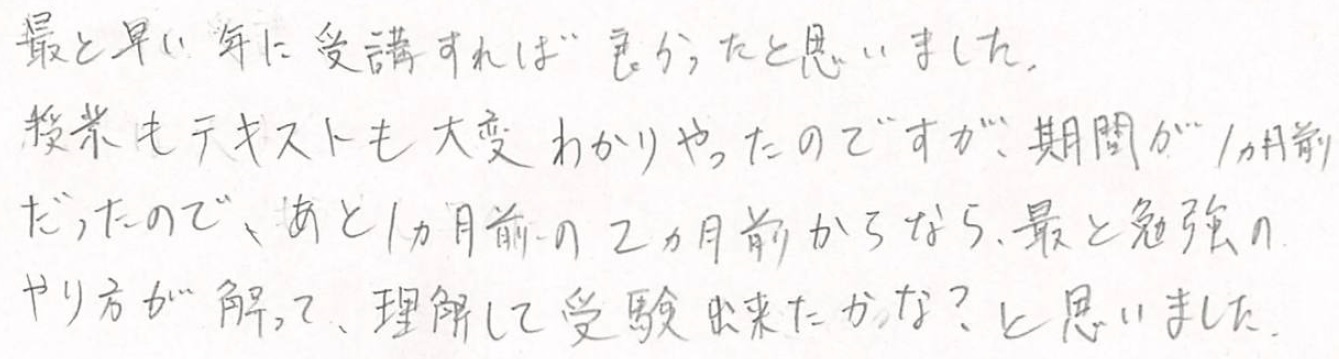 最と早い年に受講すれば良かったと思いました。
授業もテキストも大変わかりやったのですが、期間が1ヵ月前
だったので、あと1ヵ月前の2ヵ月前からなら、最と勉強の
やり方が解って、理解して受験出来たかな?と思いました。